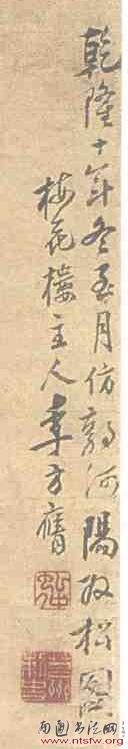 乾隆十年冬至月仿郭河陽双松圖
梅花樓主人李方膺
南通书法网
www.ntsfw.org